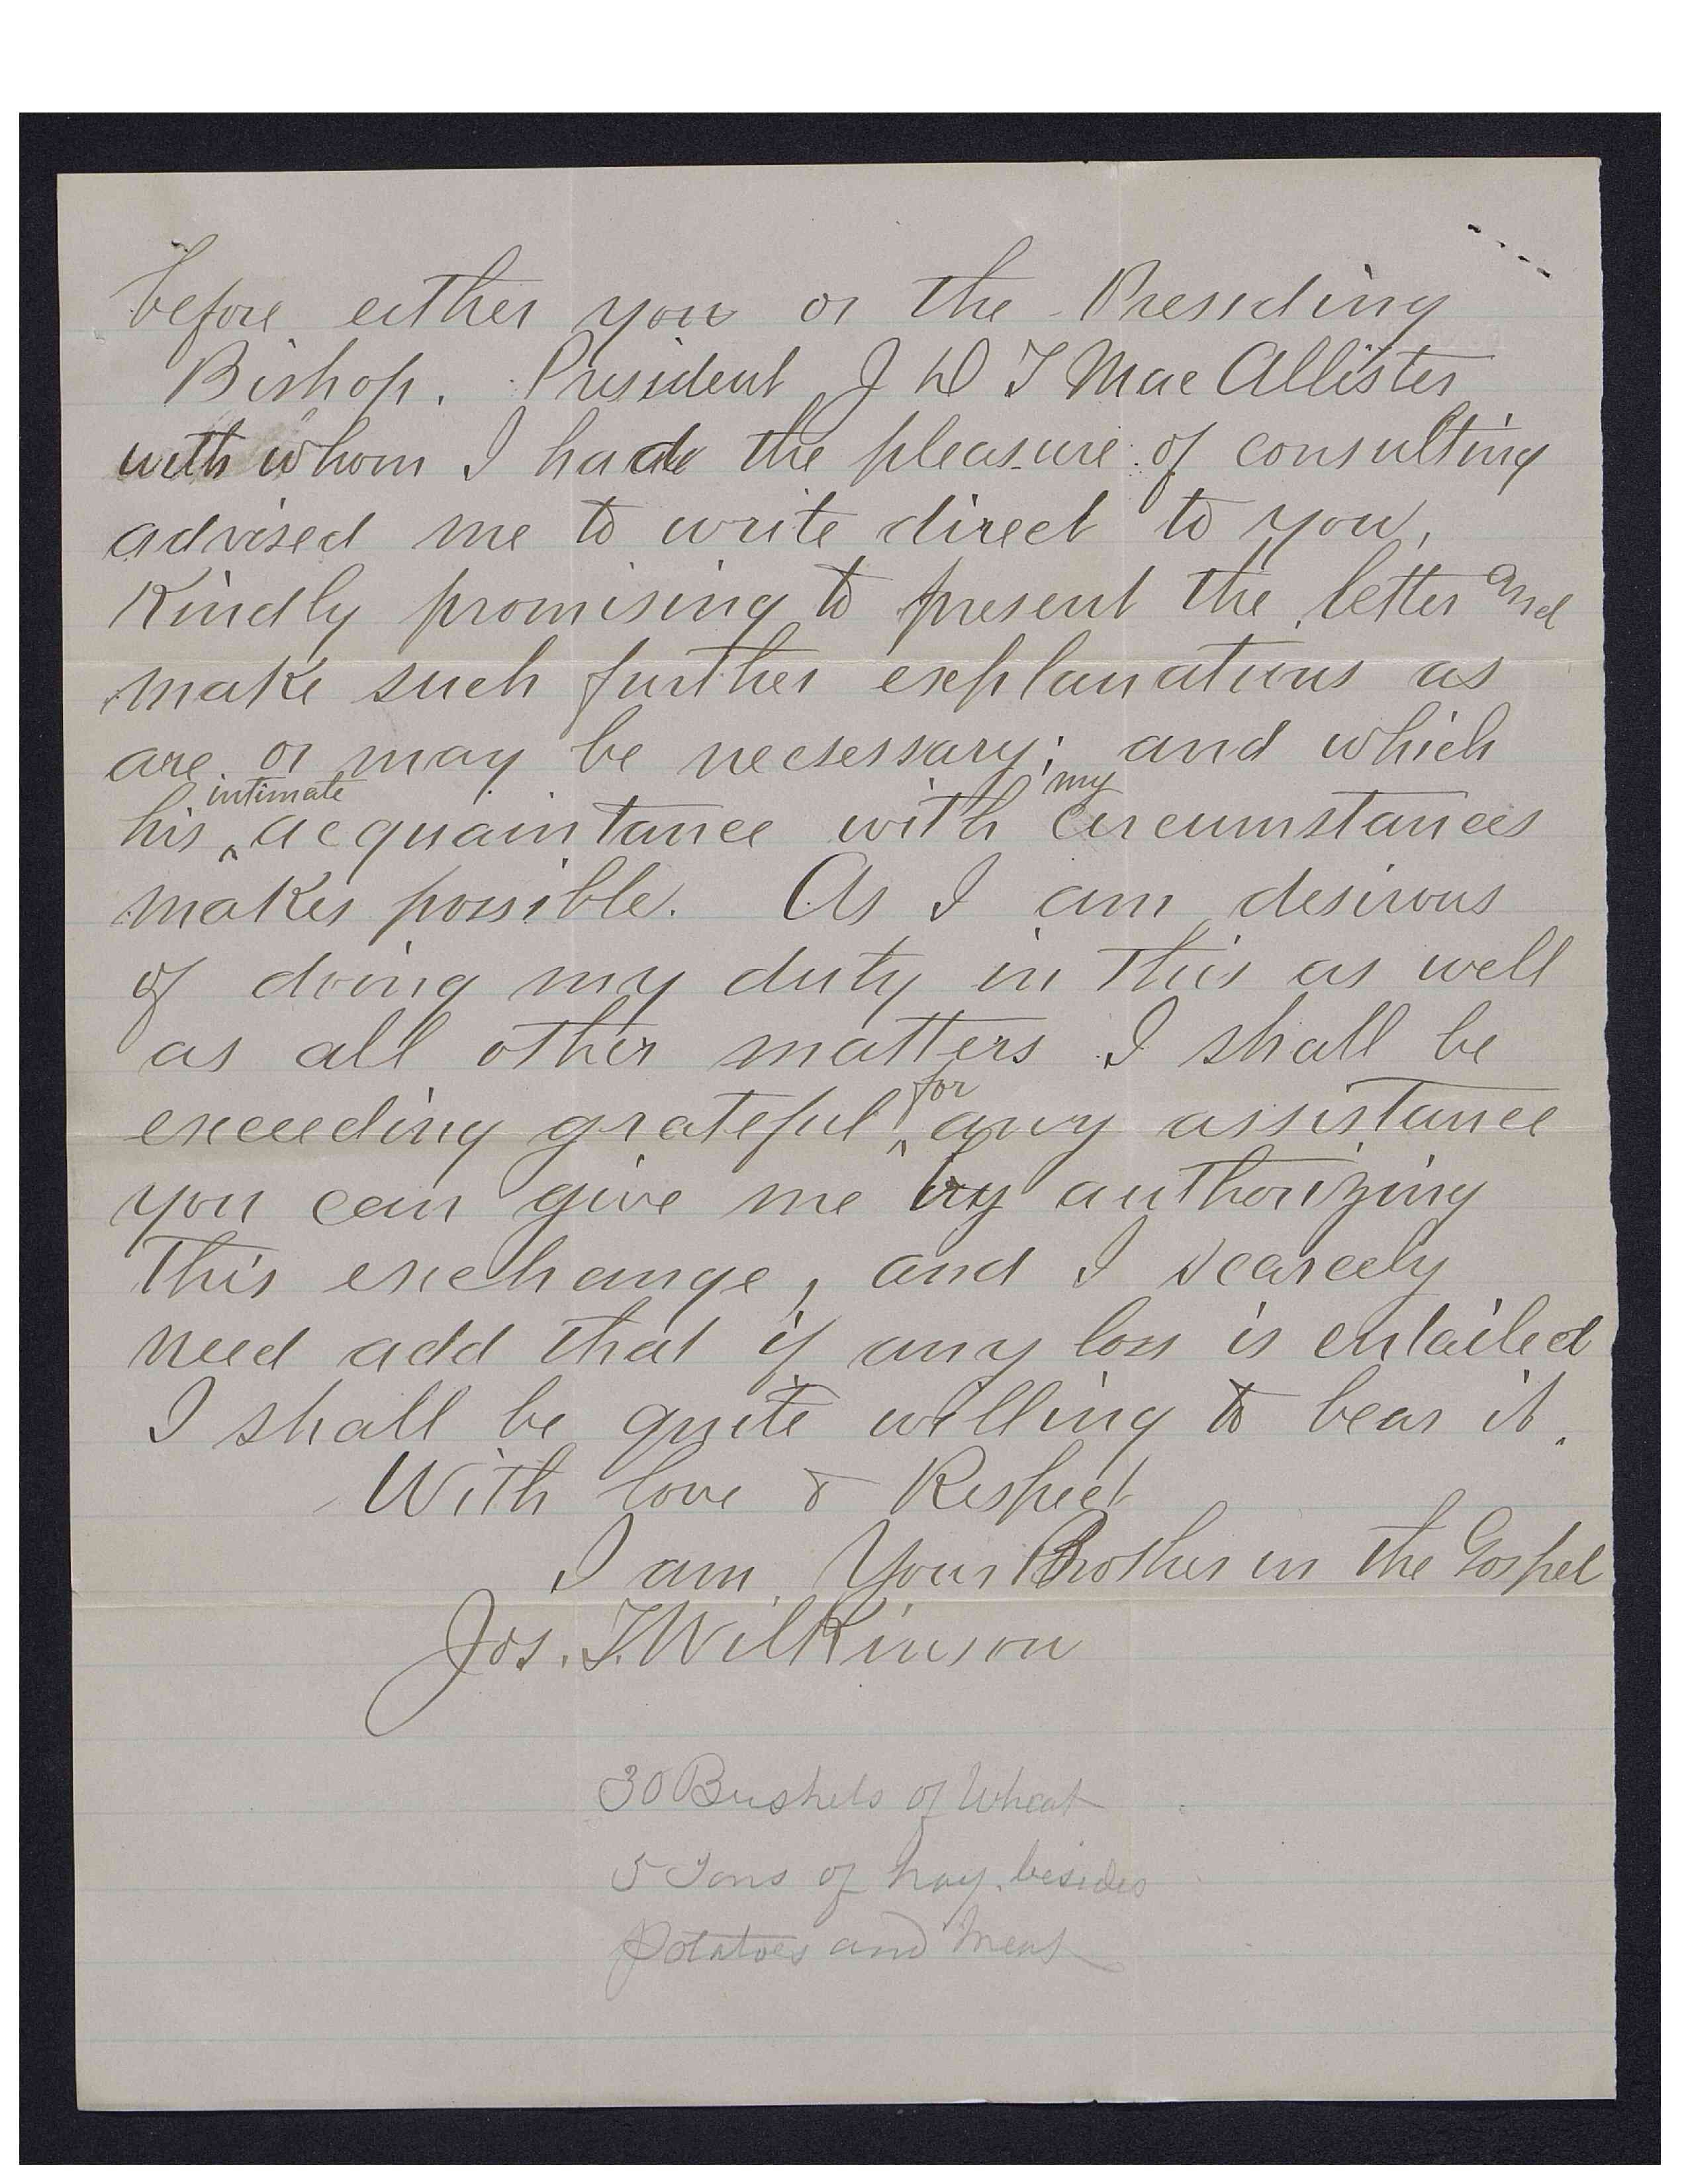 before either you or the Presiding
Bishop. President J D T MacAllister
with whom I had the pleasure of consulting
advised me to write direct to you,
Kindly promising to present the letter and
make such further explanations as
are or may be necsessary; and which
his intimate acquaintance with my circumstances
makes possible. As I am desirous
of doing my duty in this as well
as all other matters I shall be
exceeding grateful for any assistance
you can give me by authorizing
This exchange, and I scarcely
need add that if any loss is entailed
I shall be quite willing to bear it.
With love & Respect
I am Your Brother in the Gospel
Jos. T. Wilkinson
30 Bushels of Wheat
5 Tons of hay. besides
Potatoes and Meat